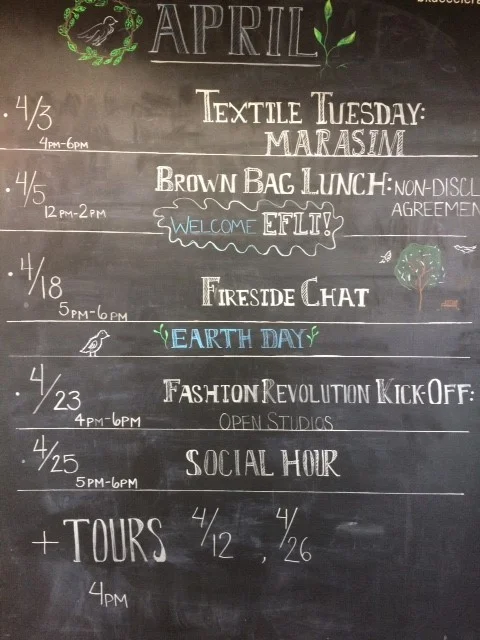 APRIL
4/3 TEXTILE TUESDAY:
4PM-6PM MARASIM
4/5 BROWN BAG LUNCH: NON-DISCL
12PM-2PM AGREEMEN
WELCOME EFLT!
4/18 FIRESIDE CHAT
5PM-6PM
EARTH DAY
4/23 FASHION REVOLUTION KICK-OFF:
4PM-6PM OPEN STUDIOS
4/25 SOCIAL HOUR
5PM-6PM
+ TOURS 4/12, 4/26
4PM